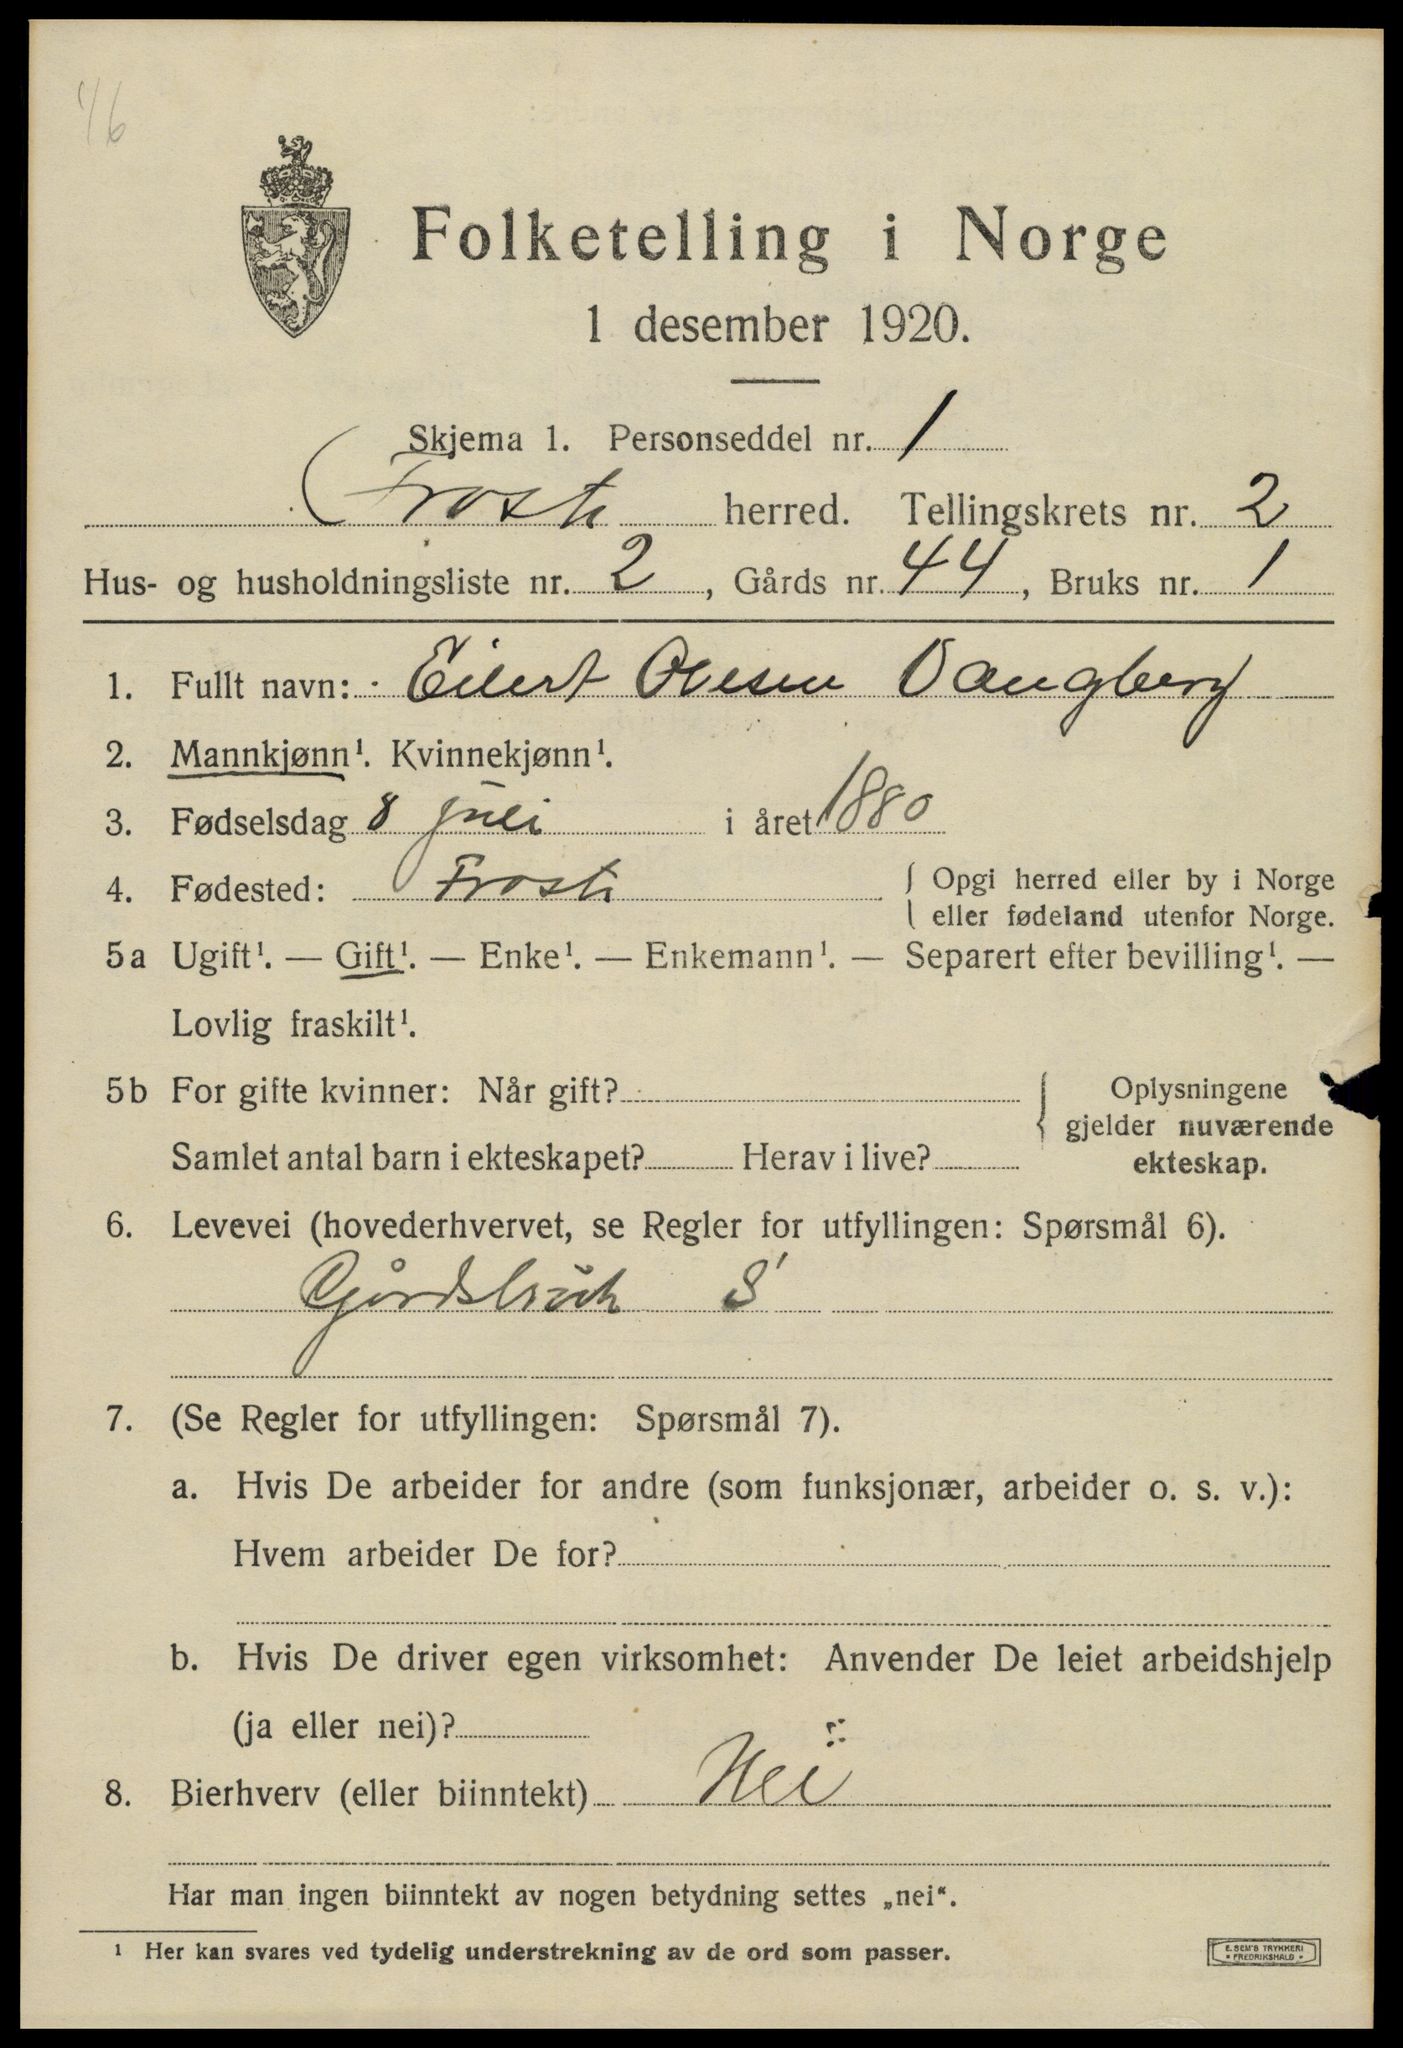 1/6
Folketelling i Norge
1 desember 1920.
Skjema 1. Personseddel nr. 1
Frosta herred. Tellingskrets nr. 2
Hus- og husholdningsliste nr. 2, Gårds nr. 44, Bruks nr. 1
1. Fullt navn: Eilert Olesen Vangberg
2. Mannkjønn¹. Kvinnekjønn¹.
3. Fødselsdag 8 juli i året 1880
4. Fødested: Frosta { Opgi herred eller by i Norge
eller fødeland utenfor Norge.
5a Ugift¹. — Gift¹. — Enke¹. — Enkemann¹. — Separert efter bevilling¹. —
Lovlig fraskilt¹.
5b For gifte kvinner: Når gift? { Oplysningene
gjelder nuværende
Samlet antal barn i ekteskapet? Herav i live? ekteskap.
6. Levevei (hovederhvervet, se Regler for utfyllingen: Spørsmål 6).
Gårdsbruk S
7. (Se Regler for utfyllingen: Spørsmål 7).
a. Hvis De arbeider for andre (som funksjonær, arbeider o. s. v.):
Hvem arbeider De for?
b. Hvis De driver egen virksomhet: Anvender De leiet arbeidshjelp
(ja eller nei)?
8. Bierhverv (eller biinntekt) Nei
Har man ingen biinntekt av nogen betydning settes „nei“.
¹ Her kan svares ved tydelig understrekning av de ord som passer.
E. SEM'S TRYKKERI
FREDRIKSHALD